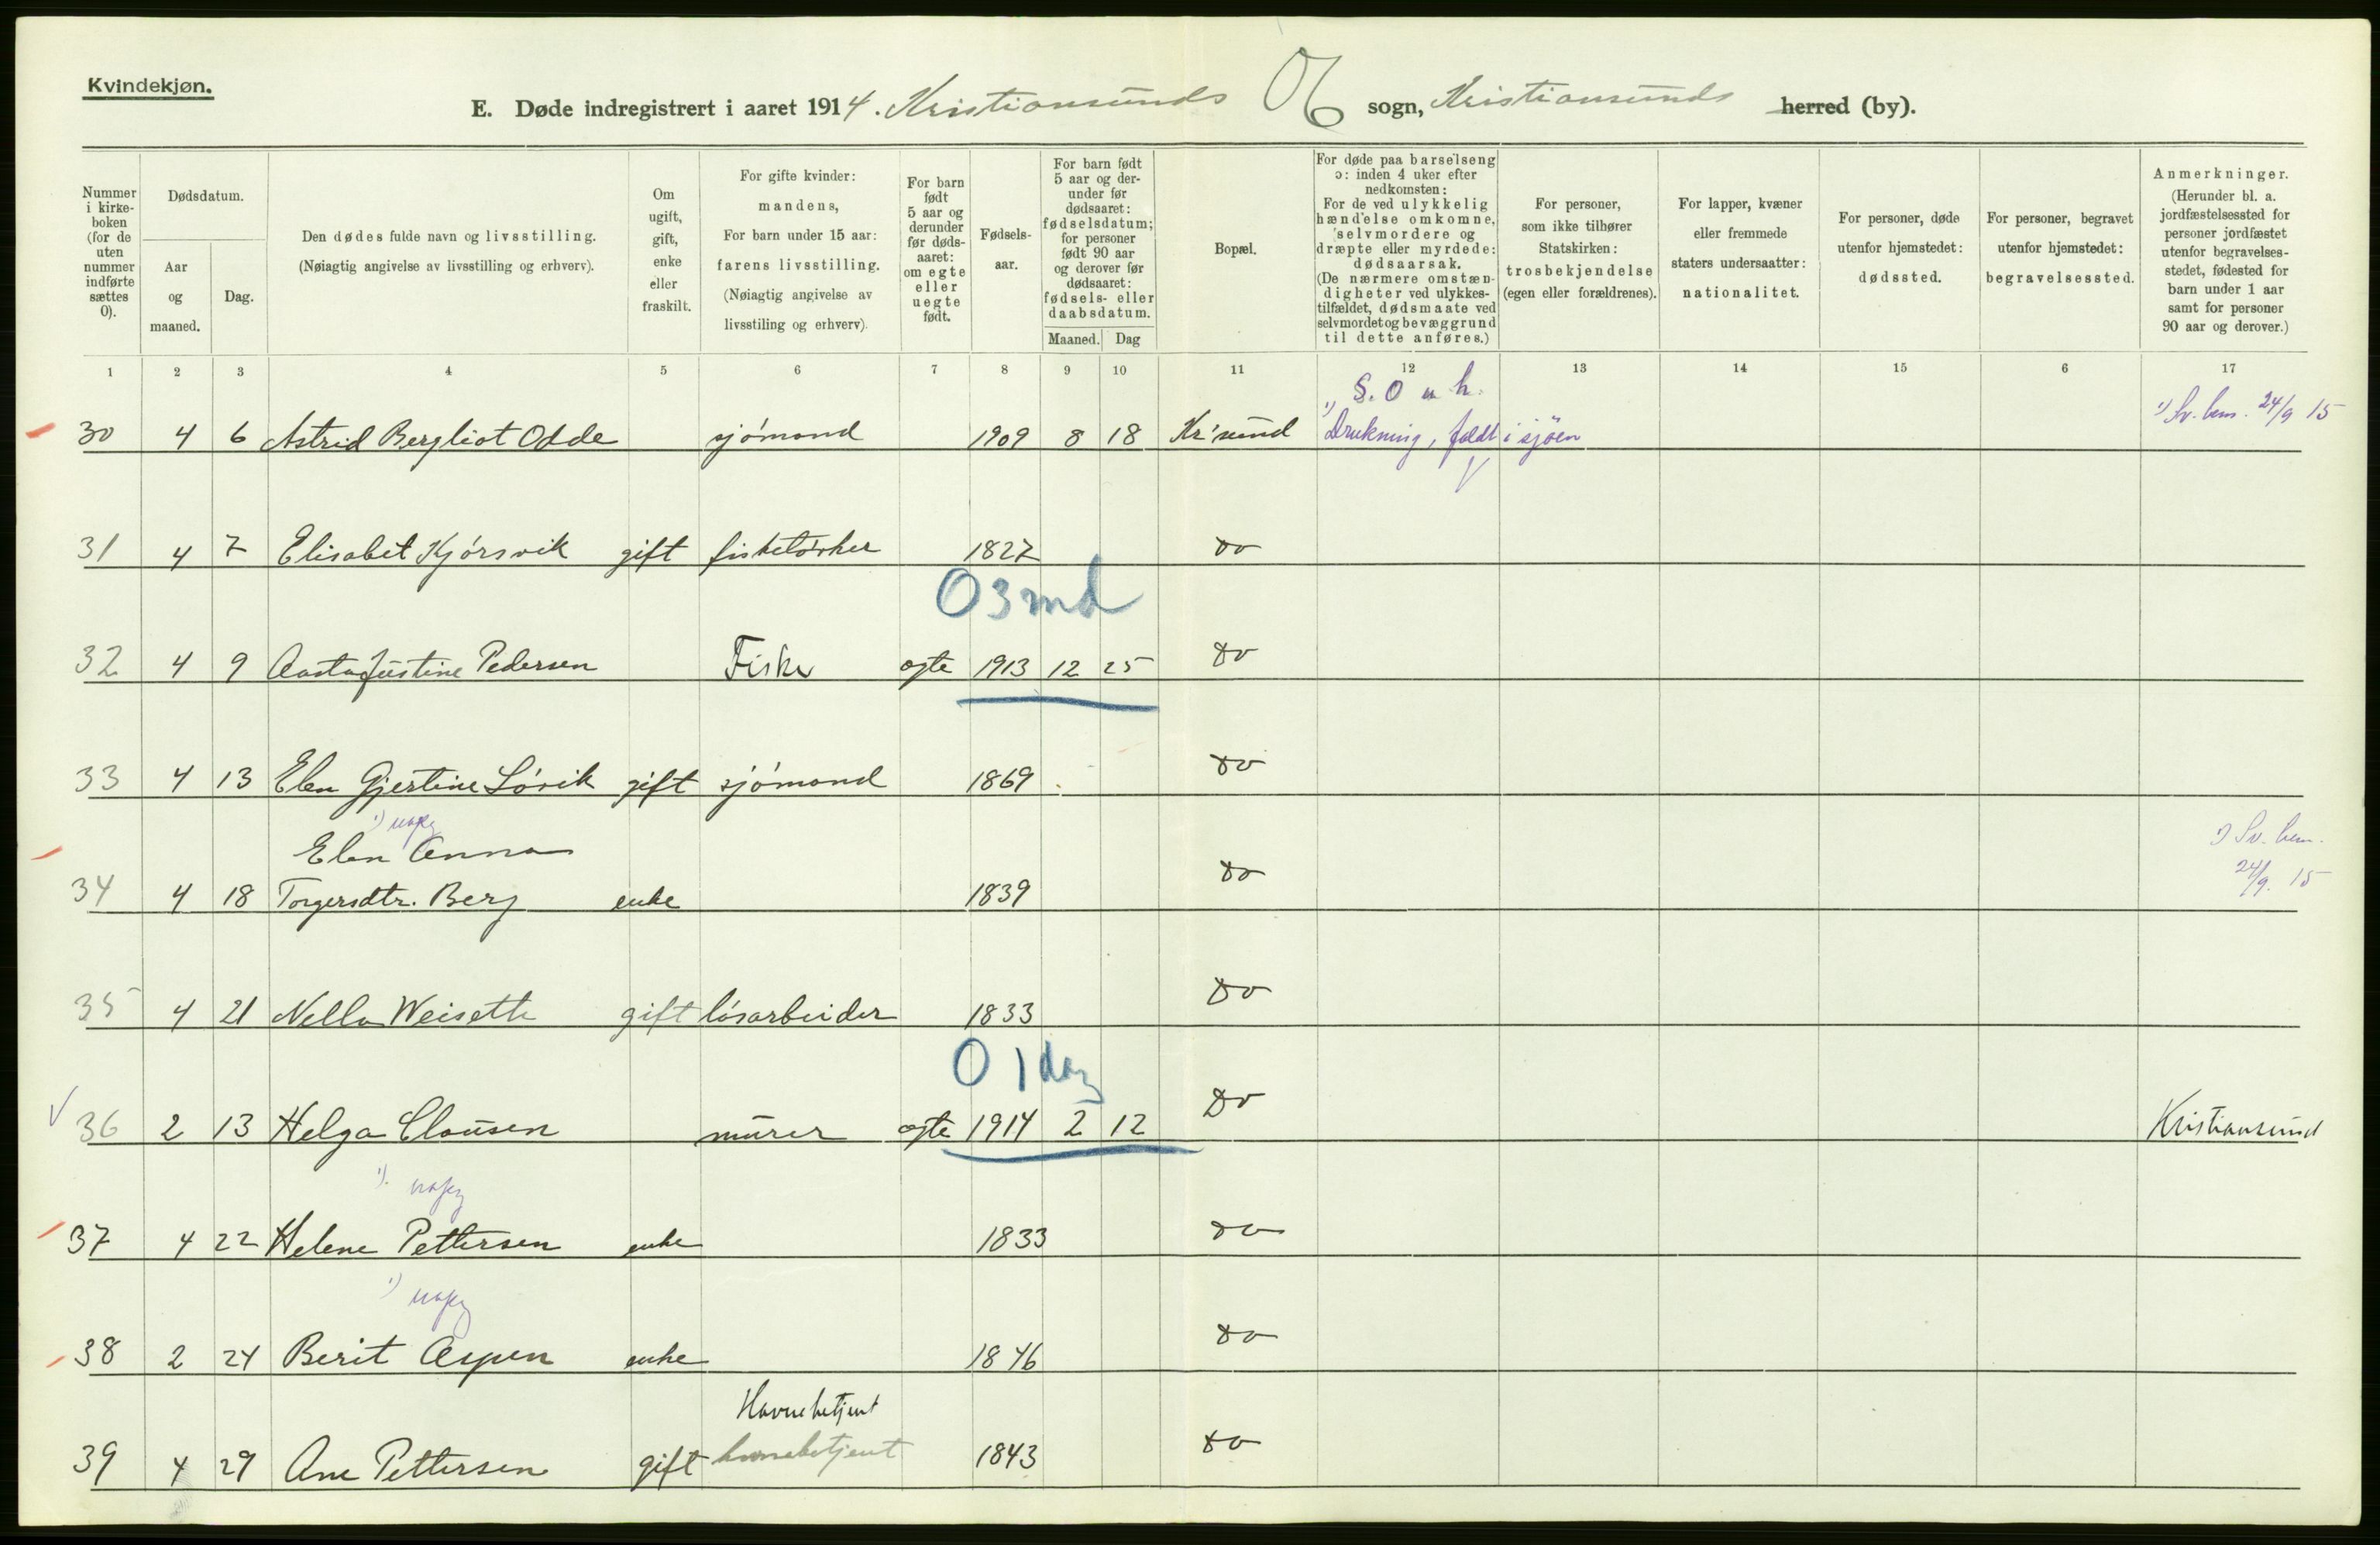 Kvindekjøn.
E. Døde indregistrert i aaret 1914. Kristiansunds sogn, Kristiansunds herred (by).
Nummer i kirke-boken (for de uten nummer indførte sættes 0).
Dødsdatum.
Aar og maaned.
Dag.
Den dødes fulde navn og livsstilling.
(Nøiagtig angivelse av livsstilling og erhverv).
Om ugift, gift, enke eller fraskilt.
For gifte kvinder: mandens,
For barn under 15 aar: farens livsstilling.
(Nøiagtig angivelse av livsstiling og erhverv).
For barn født 5 aar og derunder før døds-aaret: om egte eller uegte født.
Fødsels-aar.
For barn født 5 aar og der-under før dødsaaret: fødselsdatum; for personer født 90 aar og derover før dødsaaret: fødsels- eller daabsdatum.
Maaned. Dag
Bopæl.
For døde paa barselseng ɔ: inden 4 uker efter nedkomsten:
For de ved ulykkelig hændelse omkomne, selvmordere og dræpte eller myrdede: dødsaarsak.
(De nærmere omstæn-digheter ved ulykkes-tilfældet, dødsmaate ved selvmordet og bevæggrund til dette anføres.)
For personer, som ikke tilhører Statskirken: trosbekjendelse (egen eller forældrenes).
For lapper, kvæner eller fremmede staters undersaatter: nationalitet.
For personer, døde utenfor hjemstedet: dødssted.
For personer, begravet utenfor hjemstedet: begravelsessted.
Anmerkninger.
(Herunder bl. a. jordfæstelsessted for personer jordfæstet utenfor begravelses-stedet, fødested for barn under 1 aar samt for personer 90 aar og derover.)
1 2 3 4 5 6 7 8 9 10 11 12 13 14 15 6 17
1) S. O u h.
30 4 6 Astrid Bergliot Odde sjómand 1909 8 18 Kr'sund Drukning, faldt i sjøen 1) Sv. hem. 24/9 15
31 4 7 Elisabet Kjórsvik gift fisketórker 1827 Do
0 3 md
32 4 9 Aasta Justine Pedersen Fisker egte 1913 12 25 Do
33 4 13 Elen Gjertine Lóvik gift sjómand 1869 Do
1)
Elen Anna
34 4 18 Torgersdtr. Berg enke 1839 Do 1) Sv. hem. 24/9. 15
35 4 21 Nella Weiseth gift lósarbeider 1833 Do
0 1 dag
36 2 13 Helga Clausen murer egte 1914 2 12 Do Kristiansund
1).
37 4 22 Helene Pettersen enke 1833 Do
1)
38 2 24 Berit Aspen enke 1846 Do
Havnebetjent
39 4 29 Ane Pettersen gift havnebetjent 1843 Do